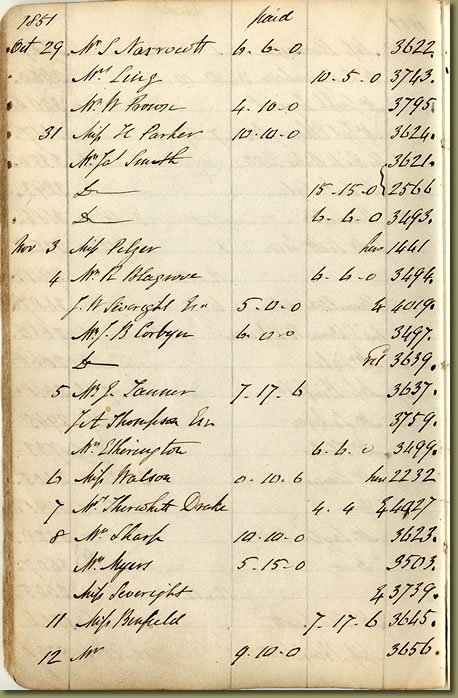 1851 paid
Oct 29 Mr S Narrowcott 6-6-0 3622.
Mrs Ling 10-5-0 3743.
Mr W Brown 4-10-0 3795
31 Miss H Parker 10-10-0 3624.
Mr Jas Smith 3621.
Do 15-15-0 2566
Do 6-6-0 3493.
Nov 3 Miss Pelzer 1441
4 Mr R Blagrove 6-6-0 3494.
J. W Severight Esq 5-0-0 & 4019.
Mr J. B Corbyn 6-0-0 3497.
Do 3639.
5 Mr J. Tanner 7-17-6 3637.
J A Thompson Esq 3759.
Mr Etherington 6-6-0 3499.
6 Miss Watson 0-10-6 2232
7 Drake 4-4
8 Mr Sharp 10-10-0 3623.
Mr Myers 5-15-0 3503.
Miss Severight & 3739.
11 Miss Binfield 7-17-6 3645.
12 Mr 9-10-0 3656.